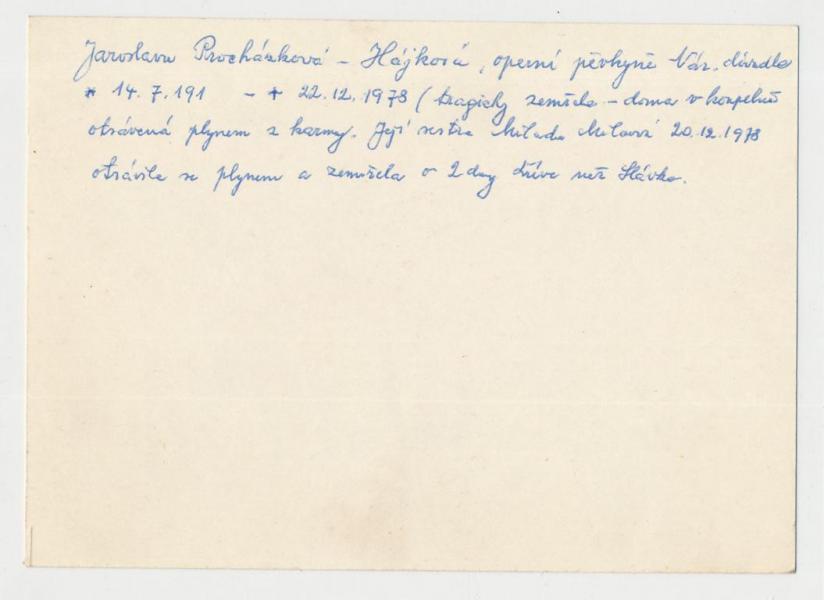 Jaroslava Procházková - Hájková, operní pěvkyně Nár. divadla
* 14.7.191 - + 22.12.1978 (tragicky zemřela - doma v koupelně
otrávená plynem z karmy. Její sestra Milada Milová 20.12.1978
otrávila se plynem a zemřela o 2 dny dříve než Slávka.